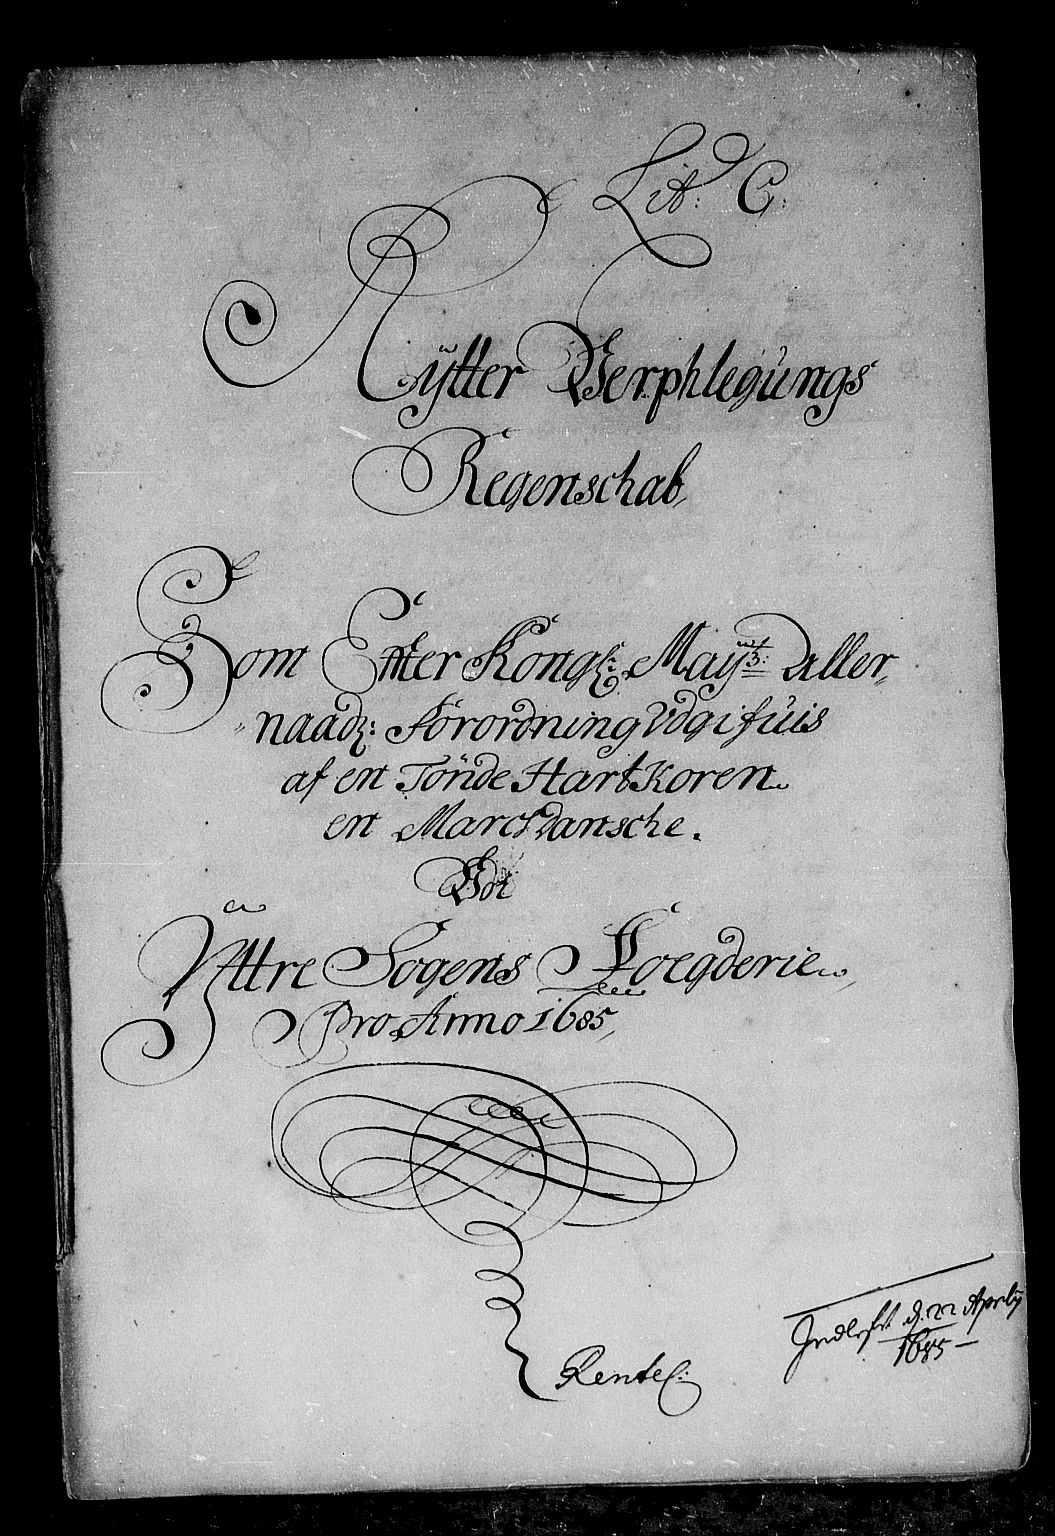 Lit: C:
Rÿtter Verphlegungs
Regenschab
Som Effter Kongl: Maÿtz: Aller
naadz: Forordning Udgifuis
af en Tönde Hartkoren
en Marck dansche.
Udi
Ÿttre Sogens Foegderie
Pro Anno 1685,
Indlefr d. 22 Aprilÿ
1685
Rentec: